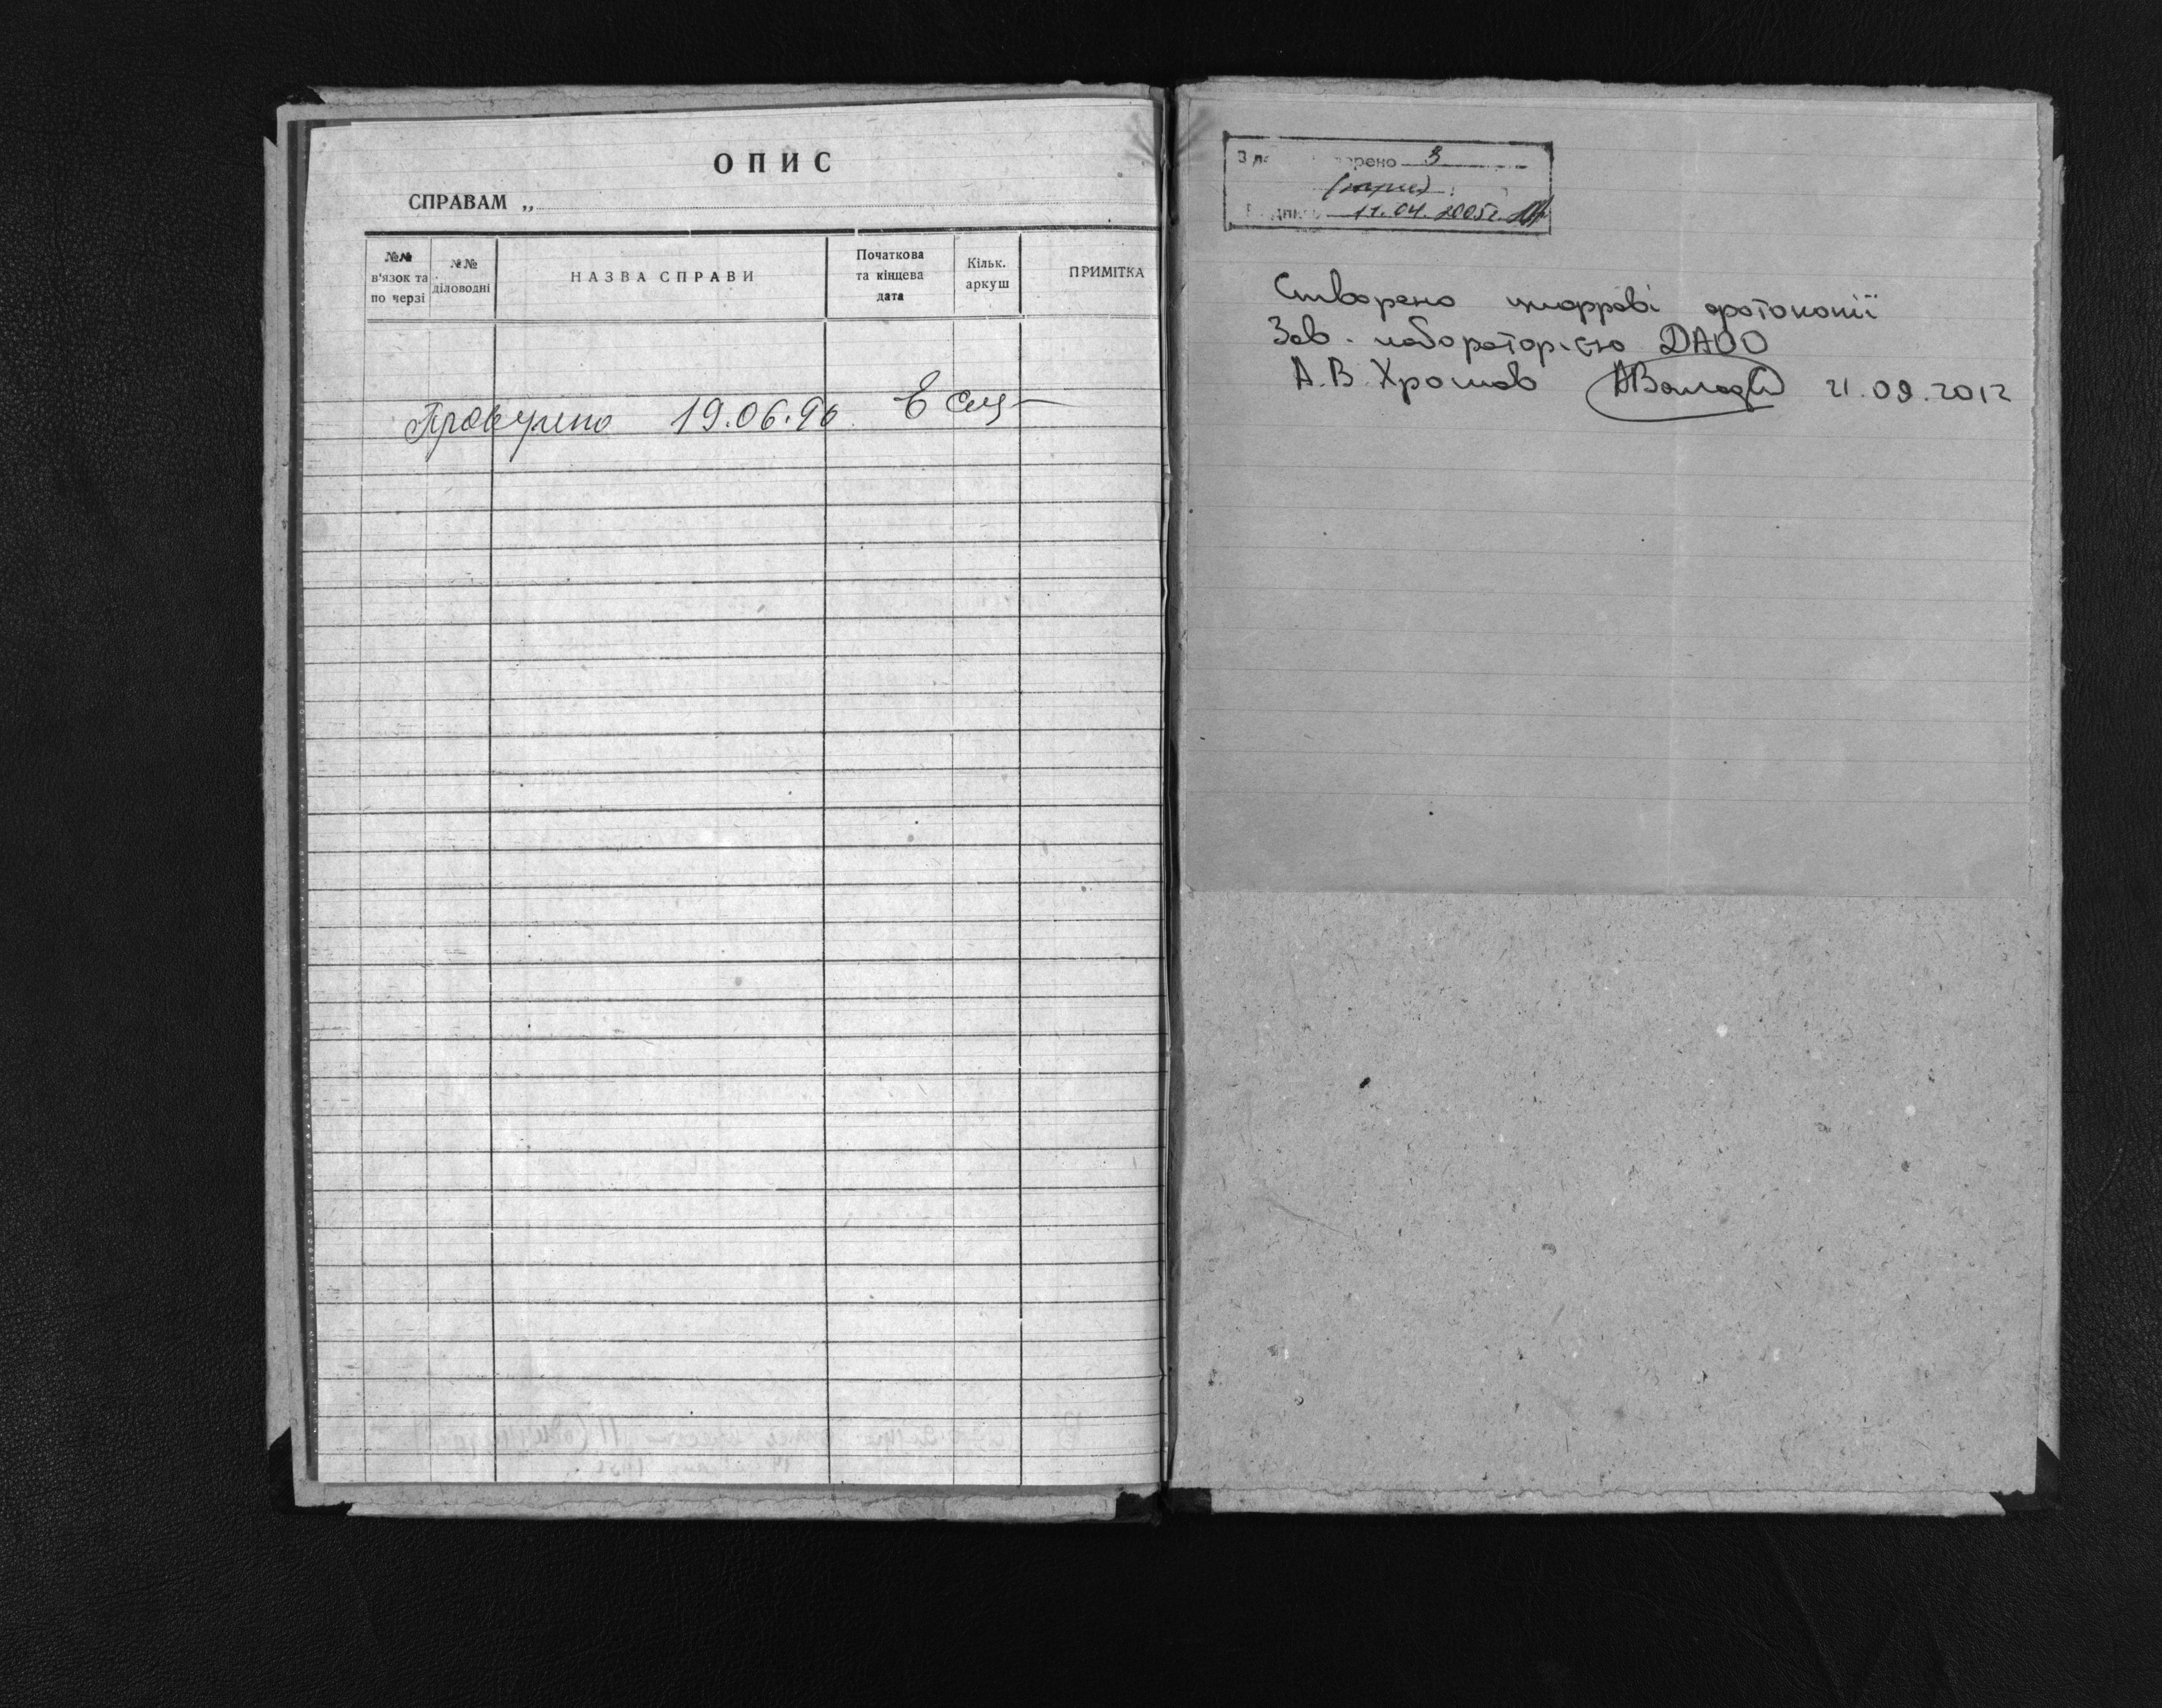 ОПИС
СПРАВАМ „
№№ в'язок та по черзі
№№ діловодні
НАЗВА СПРАВИ
Початкова та кінцева дата
Кільк. аркуш
ПРИМІТКА
Проверено 19.06.96
3
(три)
11.04.2005г.
Створено цифрові фотокопії
Зав. лабораторією ДАОО
А.В. Хромов 21.09.2012